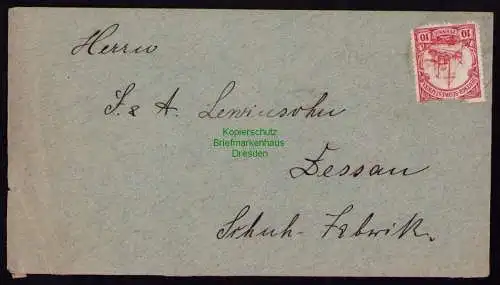 Herrn
J. & A. Lewinsohn
Kopierschutz
Briefmarkenhaus
Dresden
Dessau
Schuh-Fabrik.
10 10